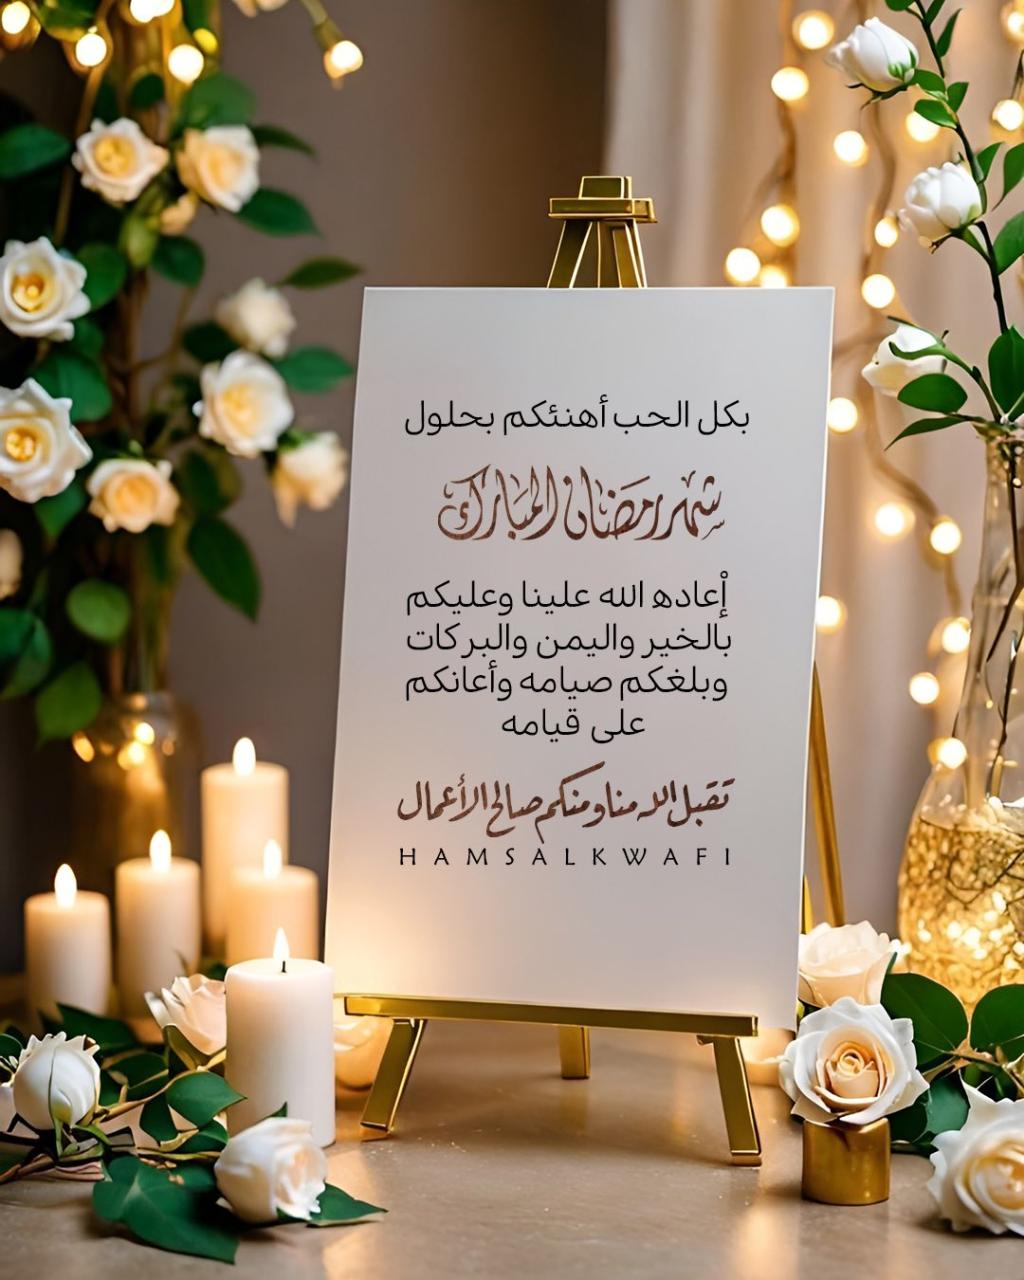 بكل الحب أهنئكم بحلول
شهر رمضان المبارك
أعاده الله علينا وعليكم
بالخير واليمن والبركات
وبلغكم صيامه وأعانكم
على قيامه
تقبل الله منا ومنكم صالح الأعمال
HAMSALKWAFI